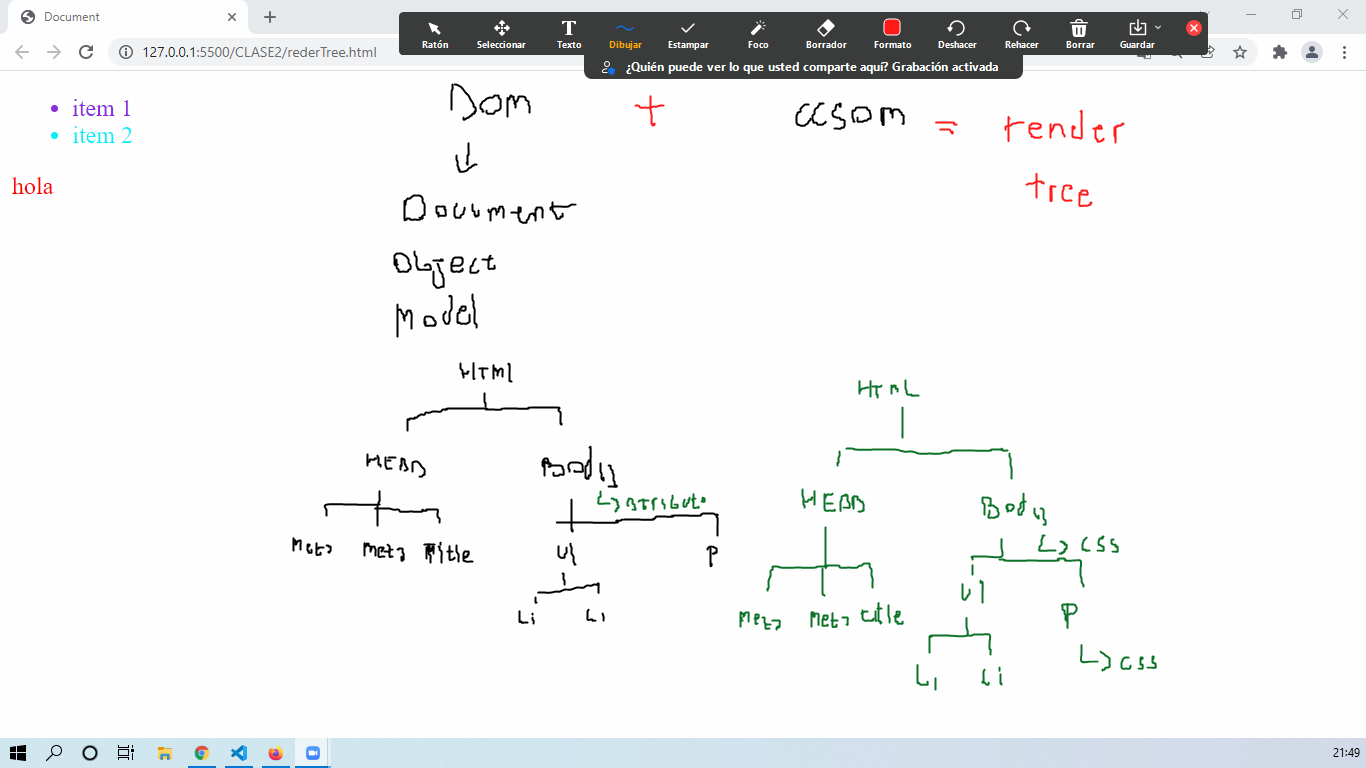 Document
127.0.0.1:5500/CLASE2/rederTree.html
Ratón Seleccionar Texto Dibujar Estampar Foco Borrador Formato Deshacer Rehacer Borrar Guardar
¿Quién puede ver lo que usted comparte aquí? Grabación activada
item 1
item 2
hola
Dom + CCSOM = render
tree
Document
Object
Model
HTML
HEAD Body
↳ Atributo
Meta Meta Title Ul P
Li Li
HTML
HEAD Body
↳ CSS
Ul P
Meta Meta title
↳ CSS
Li Li
21:49